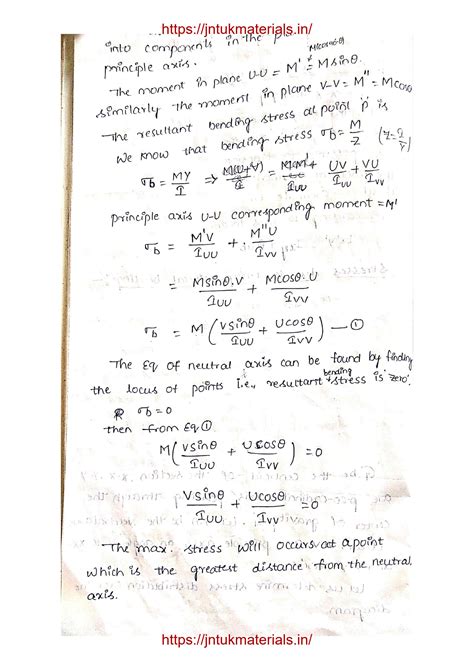 https://jntukmaterials.in/
into components in the
principle axis.
The moment in plane U-U = M' = Msinθ.
similarly the moment in plane V-V = M'' = Mcosθ
The resultant bending stress at point 'p' is
we know that bending stress σb = M/Z (Z = I/Y)
σb = MY/I ⇒ M(U+V)/I = UV/IUU + VU/IVV
principle axis U-U corresponding moment = M'
σb = M'V/IUU + M''U/IVV
= Msinθ.V/IUU + Mcosθ.U/IVV
σb = M(Vsinθ/IUU + Ucosθ/IVV) —①
The Eq of neutral axis can be found by finding
the locus of points i.e., resultant bending stress is 'zero'.
σb = 0
then from Eq ①
M(Vsinθ/IUU + Ucosθ/IVV) = 0
Vsinθ/IUU + Ucosθ/IVV = 0
The max. stress will occurs at a point
which is the greatest distance from the neutral
axis.
https://jntukmaterials.in/